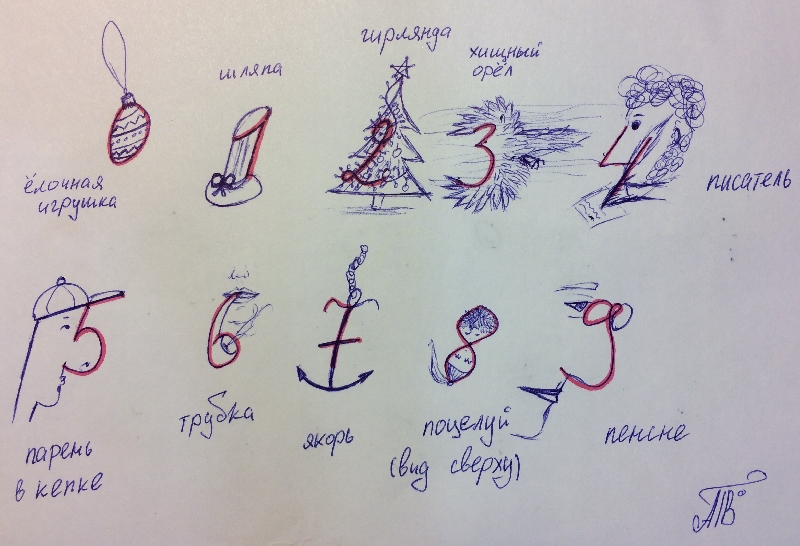 гирлянда
шляпа
хищный
орёл
ёлочная
игрушка
писатель
0
1
2
3
4
5
6
7
8
9
парень
в кепке
трубка
якорь
поцелуй
(вид сверху)
пенсне